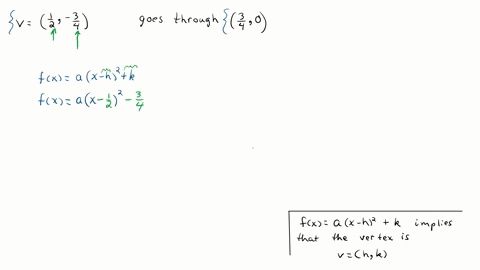 {v = (1/2, -3/4) goes through {(3/4, 0)
f(x) = a(x-h)²+k
f(x) = a(x-1/2)² - 3/4
f(x) = a(x-h)² + k implies
that the vertex is
v=(h,k)